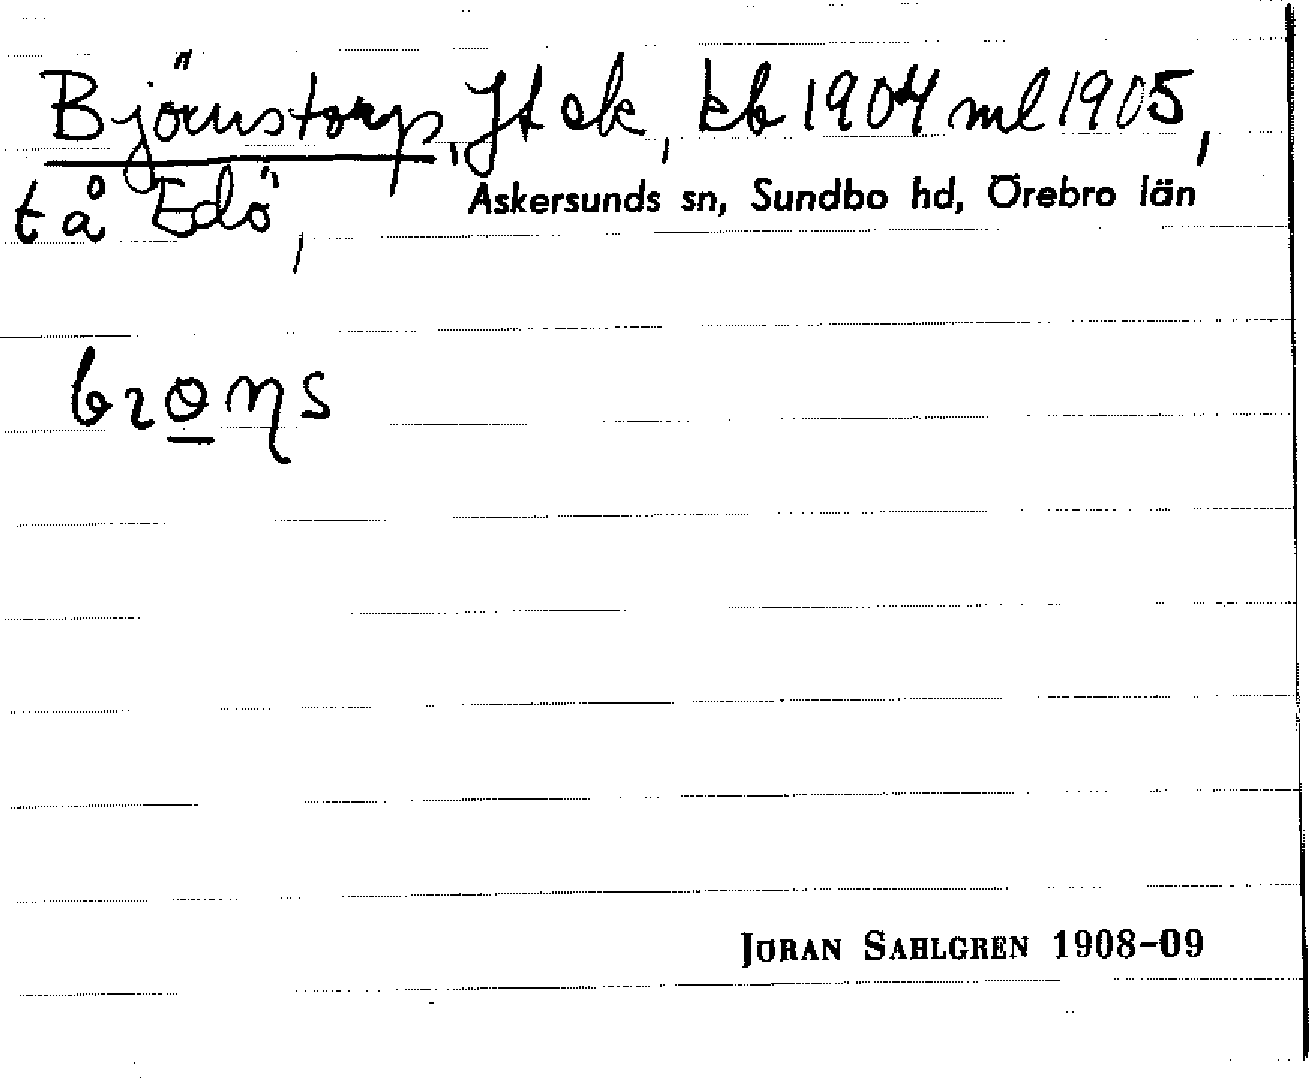 Björnstorp, Jt ek, kb 1904 ml 1905,
tå Edö,
Askersunds sn, Sundbo hd, Örebro län
JÖRAN SAHLGREN 1908-09